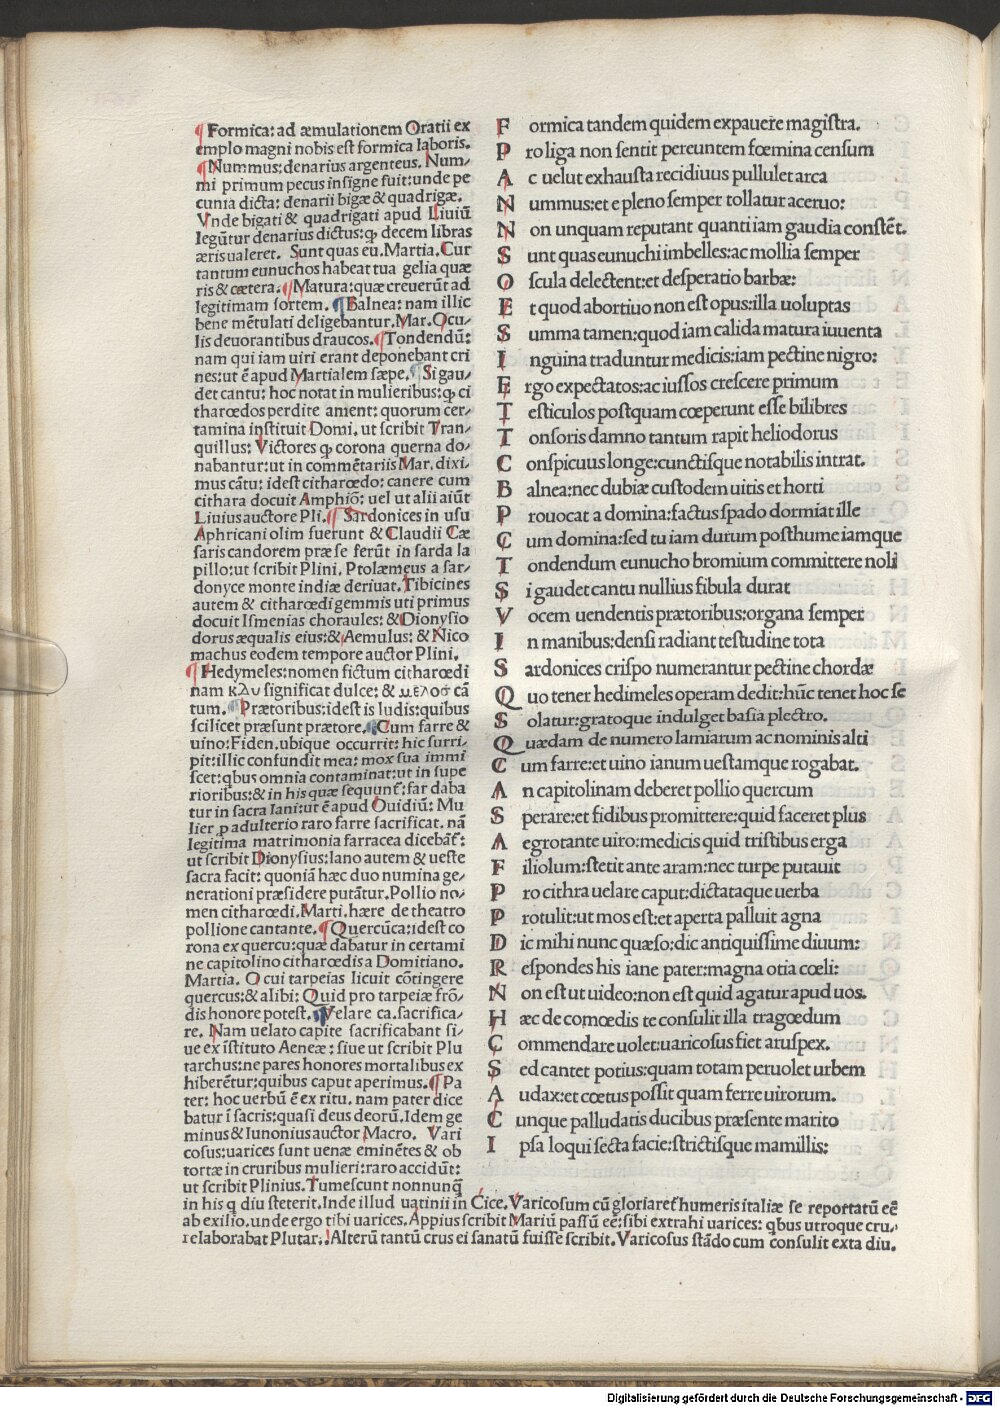 ¶Formica: ad æmulationem Oratii ex
emplo magni nobis est formica laboris.
¶Nummus: denarius argenteus. Num/
mi primum pecus insigne fuit: unde pe
cunia dicta: denarii bigæ & quadrigæ.
Vnde bigati & quadrigati apud Liuiū
legūtur denarius dictus: ꝙ decem libras
æris ualeret. Sunt quas eu. Martia. Cur
tantum eunuchos habeat tua gelia quæ
ris & cætera. ¶Matura: quæ creuerūt ad
legitimam sortem. ¶Balnea: nam illic
bene mētulati deligebantur. Mar. Ocu/
lis deuorantibus draucos. ¶Tondendū:
nam qui iam uiri erant deponebant cri
nes: ut ē apud Martialem sæpe. ¶Si gau/
det cantu: hoc notat in mulieribus: ꝙ ci
tharœdos perdite ament: quorum cer/
tamina instituit Domi. ut scribit Tran/
quillus: Victores ꝙ corona querna do/
nabantur: ut in commētariis Mar. dixi/
mus cātu: idest citharœdo: canere cum
cithara docuit Amphiō: uel ut alii aiūt
Liuius auctore Pli. ¶Sardonices in usu
Aphricani olim fuerunt & Claudii Cæ
saris candorem præ se ferūt in sarda la
pillo: ut scribit Plini. Ptolæmeus a sar/
donyce monte indiæ deriuat. Tibicines
autem & citharœdi gemmis uti primus
docuit Ismenias choraules: & Dionysio
dorus æqualis eius: & Aemulus: & Nico
machus eodem tempore auctor Plini.
¶Hedymeles: nomen fictum citharœdi
nam κλυ significat dulce: & μελοσ cā
tum. ¶Prætoribus: idest is ludis: quibus
scilicet præsunt prætore. ¶Cum farre &
uino: Fiden. ubique occurrit: hic surri/
pit: illic confundit mea: mox sua immi
scet: qbus omnia contaminat: ut in supe
rioribus: & in his quæ sequunt̃: far daba
tur in sacra Iani: ut ē apud Ouidiū: Mu
lier ꝓ adulterio raro farre sacrificat. nā
legitima matrimonia farracea dicebāt̃:
ut scribit Dionysius: Iano autem & ueste
sacra facit: quoniā hæc duo numina ge/
nerationi præsidere putātur. Pollio no/
men citharœdi. Marti. hære de theatro
pollione cantante. ¶Quercūca: idest co
rona ex quercu: quæ dabatur in certami
ne capitolino citharœdis a Domitiano.
Martia. O cui tarpeias licuit cōtingere
quercus: & alibi: Quid pro tarpeiæ frō/
dis honore potest. ¶Velare ca. sacrifica/
re. Nam uelato capite sacrificabant si/
ue ex īstituto Aeneæ: siue ut scribit Plu
tarchus: ne pares honores mortalibus ex
hiberētur: quibus caput aperimus. ¶Pa
ter: hoc uerbū ē ex ritu. nam pater dice
batur ī sacris: quasi deus deorū. Idem ge
minus & Iunonius auctor Macro. Vari
cosus: uarices sunt uenæ eminētes & ob
tortæ in cruribus mulieri: raro accidūt:
ut scribit Plinius. Tumescunt nonnunq̃
in his q̃ diu steterit. Inde illud uatinii in Cice. Varicosum cū gloriaret̃ humeris italiæ se reportatū eē
ab exilio. unde ergo tibi uarices. Appius scribit Mariū passū eē: sibi extrahi uarices: qbus utroque cru/
re laborabat Plutar. Alterū tantū crus ei sanatū fuisse scribit. Varicosus stādo cum consulit exta diu.
F ormica tandem quidem expauere magistra.
P ro liga non sentit pereuntem fœmina censum
A c uelut exhausta recidiuus pullulet arca
N ummus: et e pleno semper tollatur aceruo:
N on unquam reputant quanti iam gaudia constēt.
S unt quas eunuchi imbelles: ac mollia semper
O scula delectent: et desperatio barbæ:
E t quod abortiuo non est opus: illa uoluptas
S umma tamen: quod iam calida matura iuuenta
I nguina traduntur medicis: iam pectine nigro:
E rgo expectatos: ac iussos crescere primum
T esticulos postquam cœperunt esse bilibres
T onsoris damno tantum rapit heliodorus
C onspicuus longe: cunctisque notabilis intrat.
B alnea: nec dubiæ custodem uitis et horti
P rouocat a domina: factus spado dormiat ille
C um domina: sed tu iam durum posthume iamque
T ondendum eunucho bromium committere noli
S i gaudet cantu nullius fibula durat
V ocem uendentis prætoribus: organa semper
I n manibus: densi radiant testudine tota
S ardonices crispo numerantur pectine chordæ
Q uo tener hedimeles operam dedit: hūc tenet hoc se
S olatur: gratoque indulget basia plectro.
Q uædam de numero lamiarum ac nominis alti
C um farre: et uino ianum uestamque rogabat.
A n capitolinam deberet pollio quercum
S perare: et fidibus promittere: quid faceret plus
A egrotante uiro: medicis quid tristibus erga
F iliolum: stetit ante aram: nec turpe putauit
P ro cithra uelare caput: dictataque uerba
P rotulit: ut mos est: et aperta palluit agna
D ic mihi nunc quæso: dic antiquissime diuum:
R espondes his iane pater: magna otia cœli:
N on est ut uideo: non est quid agatur apud uos.
H æc de comœdis te consulit illa tragœdum
C ommendare uolet: uaricosus fiet aruspex.
S ed cantet potius: quam totam peruolet urbem
A udax: et cœtus possit quam ferre uirorum.
C unque palludatis ducibus præsente marito
I psa loqui secta facie: strictisque mamillis:
Digitalisierung gefördert durch die Deutsche Forschungsgemeinschaft - DFG